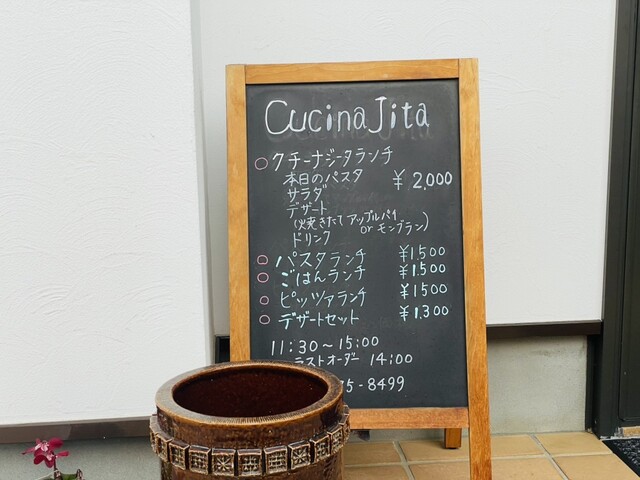 Cucina Jita
クチーナジータランチ
本日のパスタ ¥2,000
サラダ
デザート
(焼きたてアップルパイ
or モンブラン)
ドリンク
パスタランチ ¥1,500
ごはんランチ ¥1,500
ピッツァランチ ¥1500
デザートセット ¥1,300
11:30〜15:00
ラストオーダー 14:00
5-8499